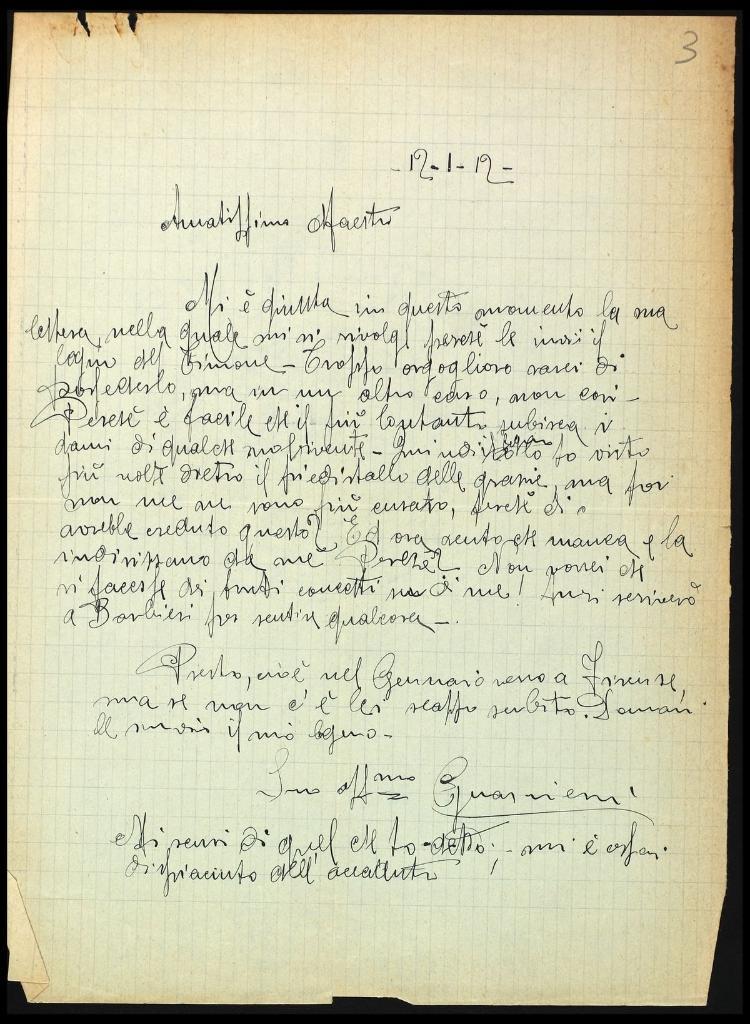 3
- 12 - 1 - 12 -
Amatissimo Maestro
Mi è giunta in questo momento la sua
lettera, nella quale mi si rivolge perchè le invii il
legno del Timone - Troppo orgoglioso sarei di
possederlo, ma in un altro caso, non così -
Perchè è facile che il più lontano subisca i
danni di qualche
più volte dietro il piedistallo delle grazie, ma poi
non me ne sono più curato, perchè chi
avrebbe creduto questo? Ed ora sento che manca e la
indirizzano da me Perchè? Non vorrei che
si facesse dei brutti concetti su di me! Anzi scriverò
a Barbieri per sentire qualcosa -
Presto, cioè nel Gennaio verrò a Firenze,
ma se non c'è lei scappo subito. Domani
le invii il mio legno -
Suo aff.mo Guarnieri
Mi scusi di quel che ho detto, - mi è assai
dispiaciuto dell' accaduto